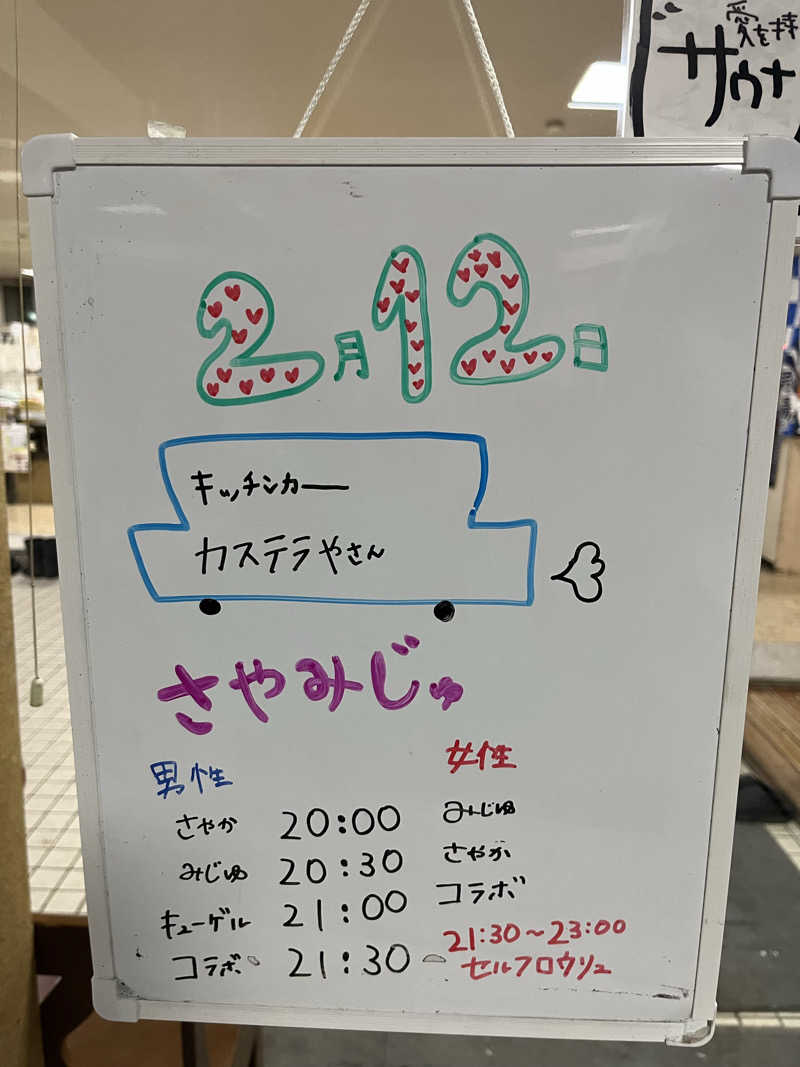 愛を持
サウナ
2月12日
キッチンカー
カステラやさん
さやみじゅ
男性 女性
さやか 20:00 みじゅ
みじゅ 20:30 さやか
キューゲル 21:00 コラボ
コラボ 21:30 21:30~23:00
セルフロウリュ